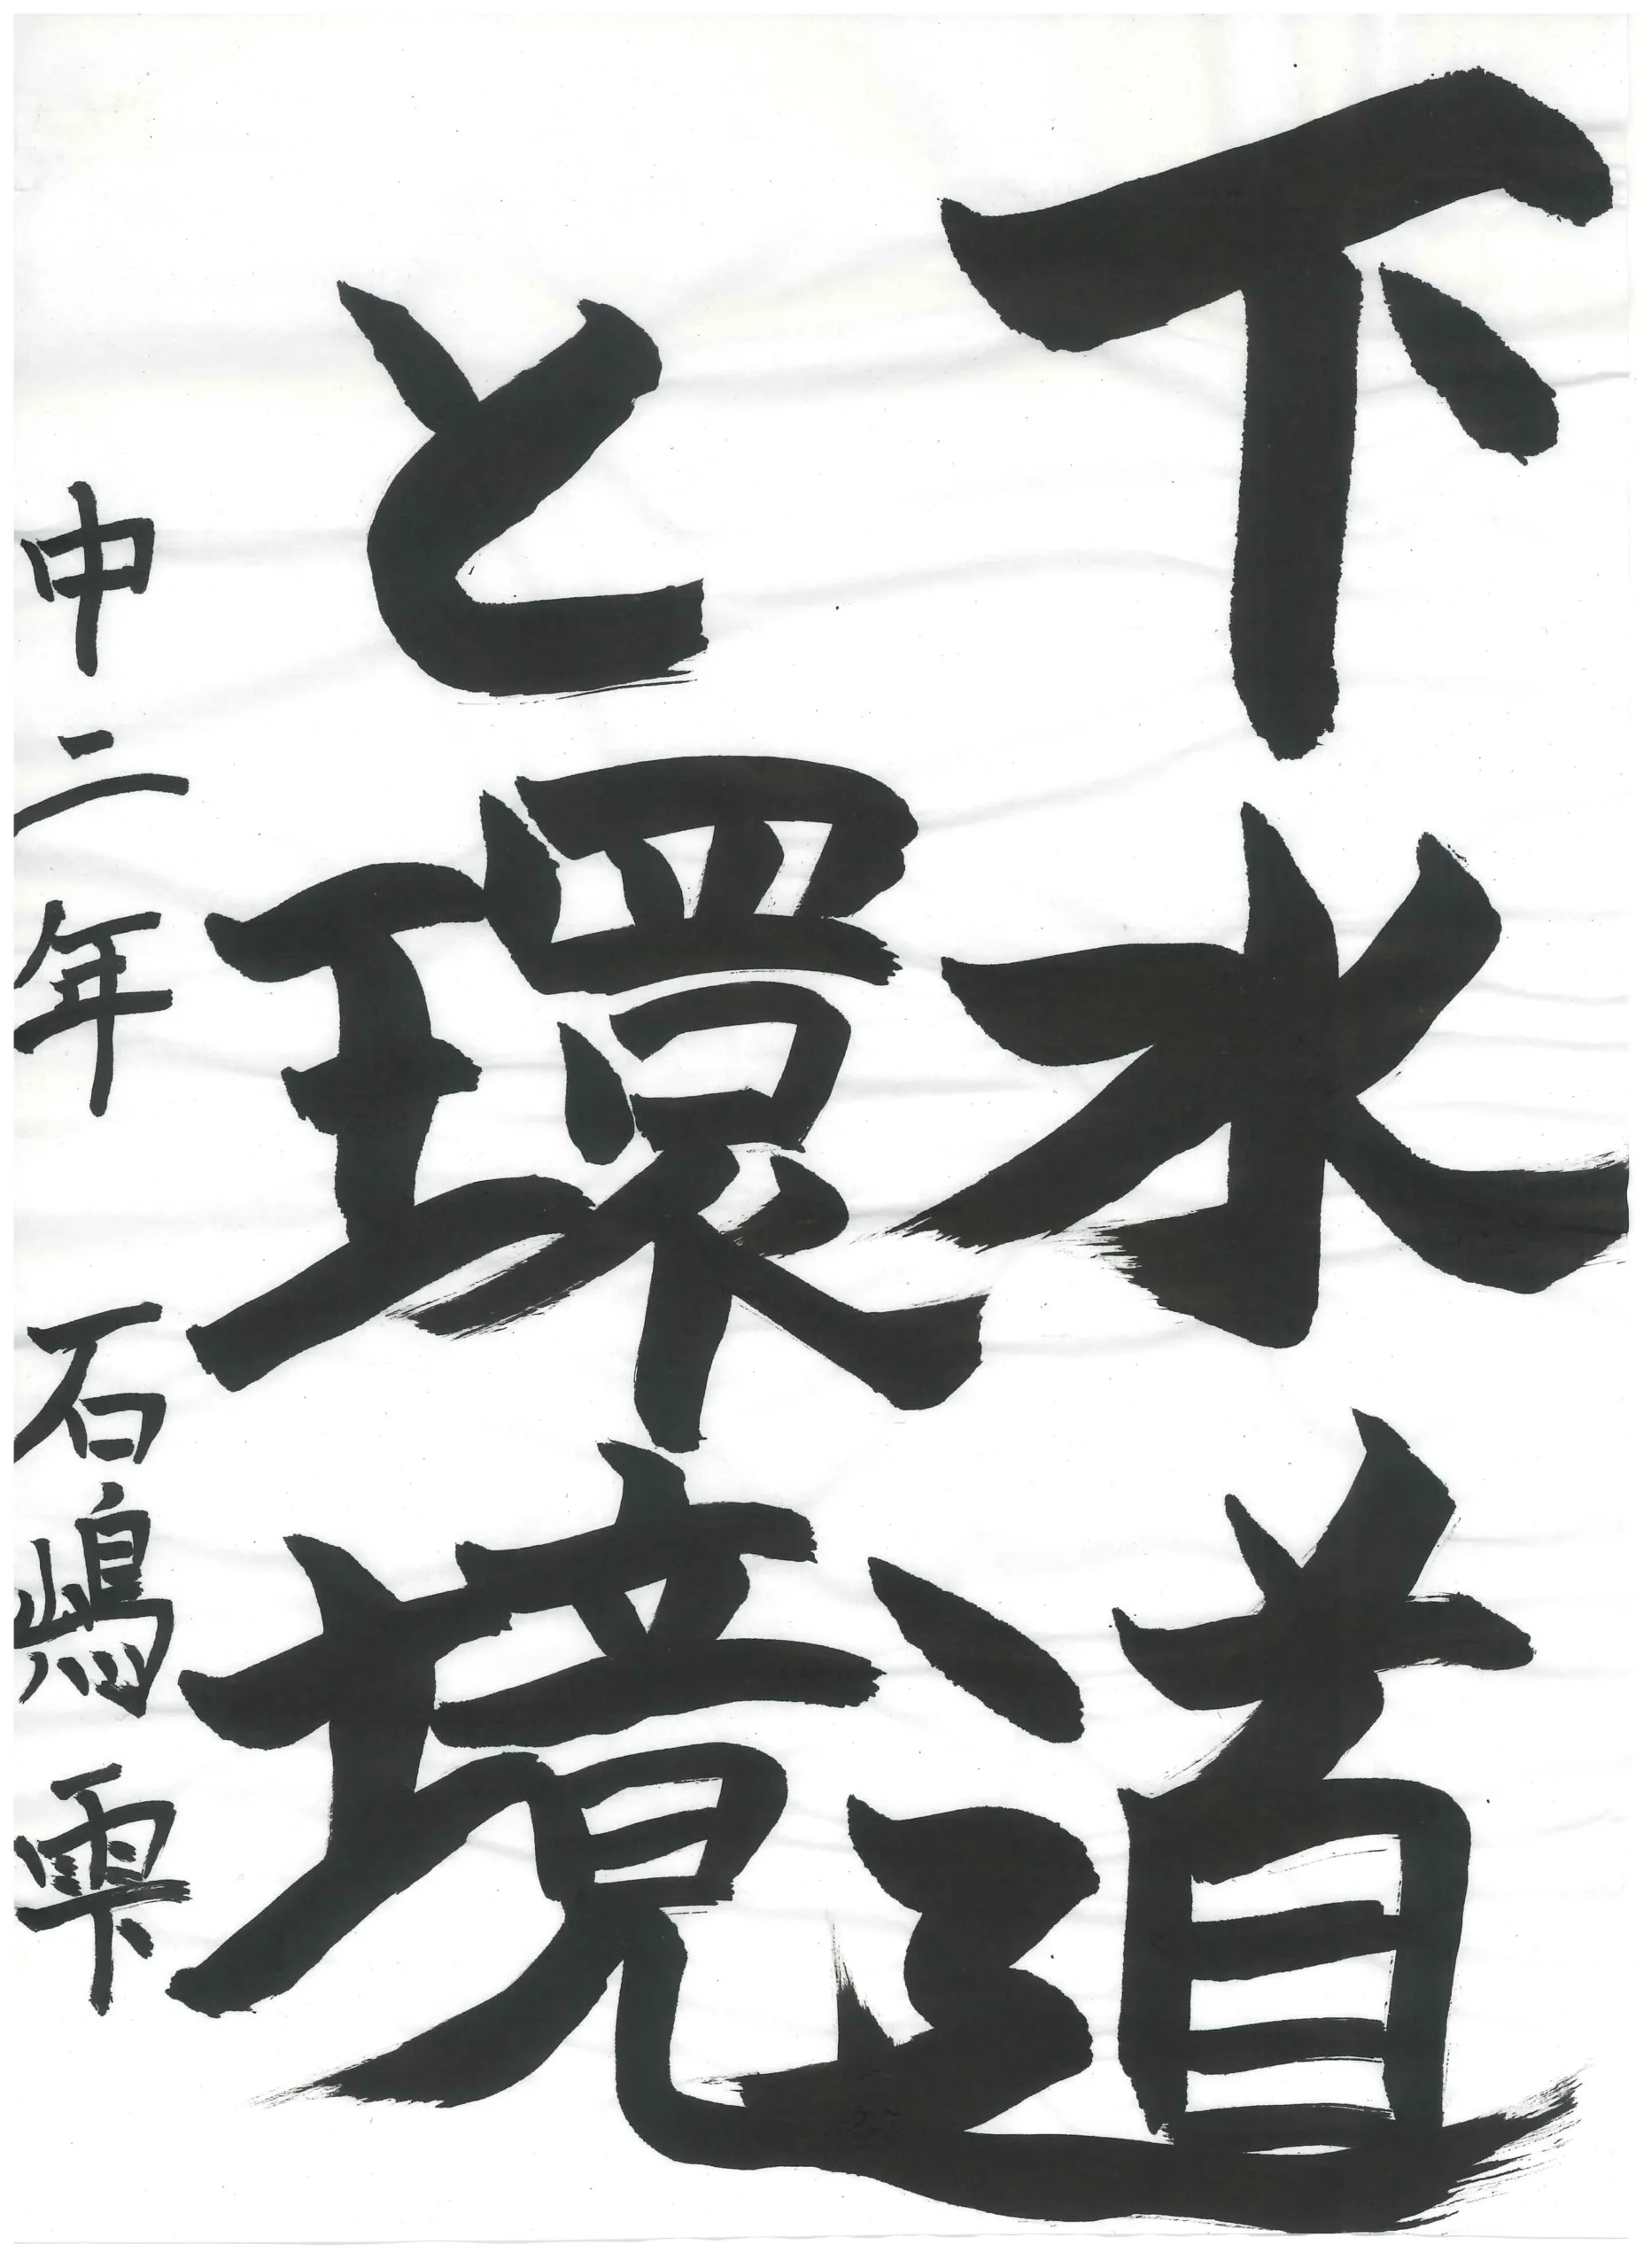 下水道
と環境
中二年 石嶋 雫